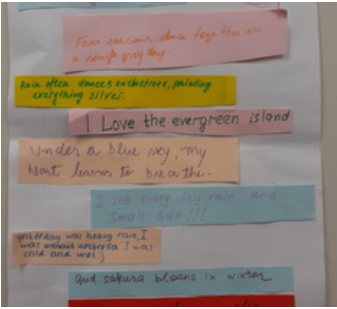 Four seasons dance together in
a single grey day.
Rain often dances outdoors, painting
everything silver.
I Love the evergreen island
Under a blue sky, my
heart learns to breathe.
I see every day rain and
small sun!!!
yesterday was heavy rain, I
was without umbrella I was
cold and wet:)
And sakura blooms in winter